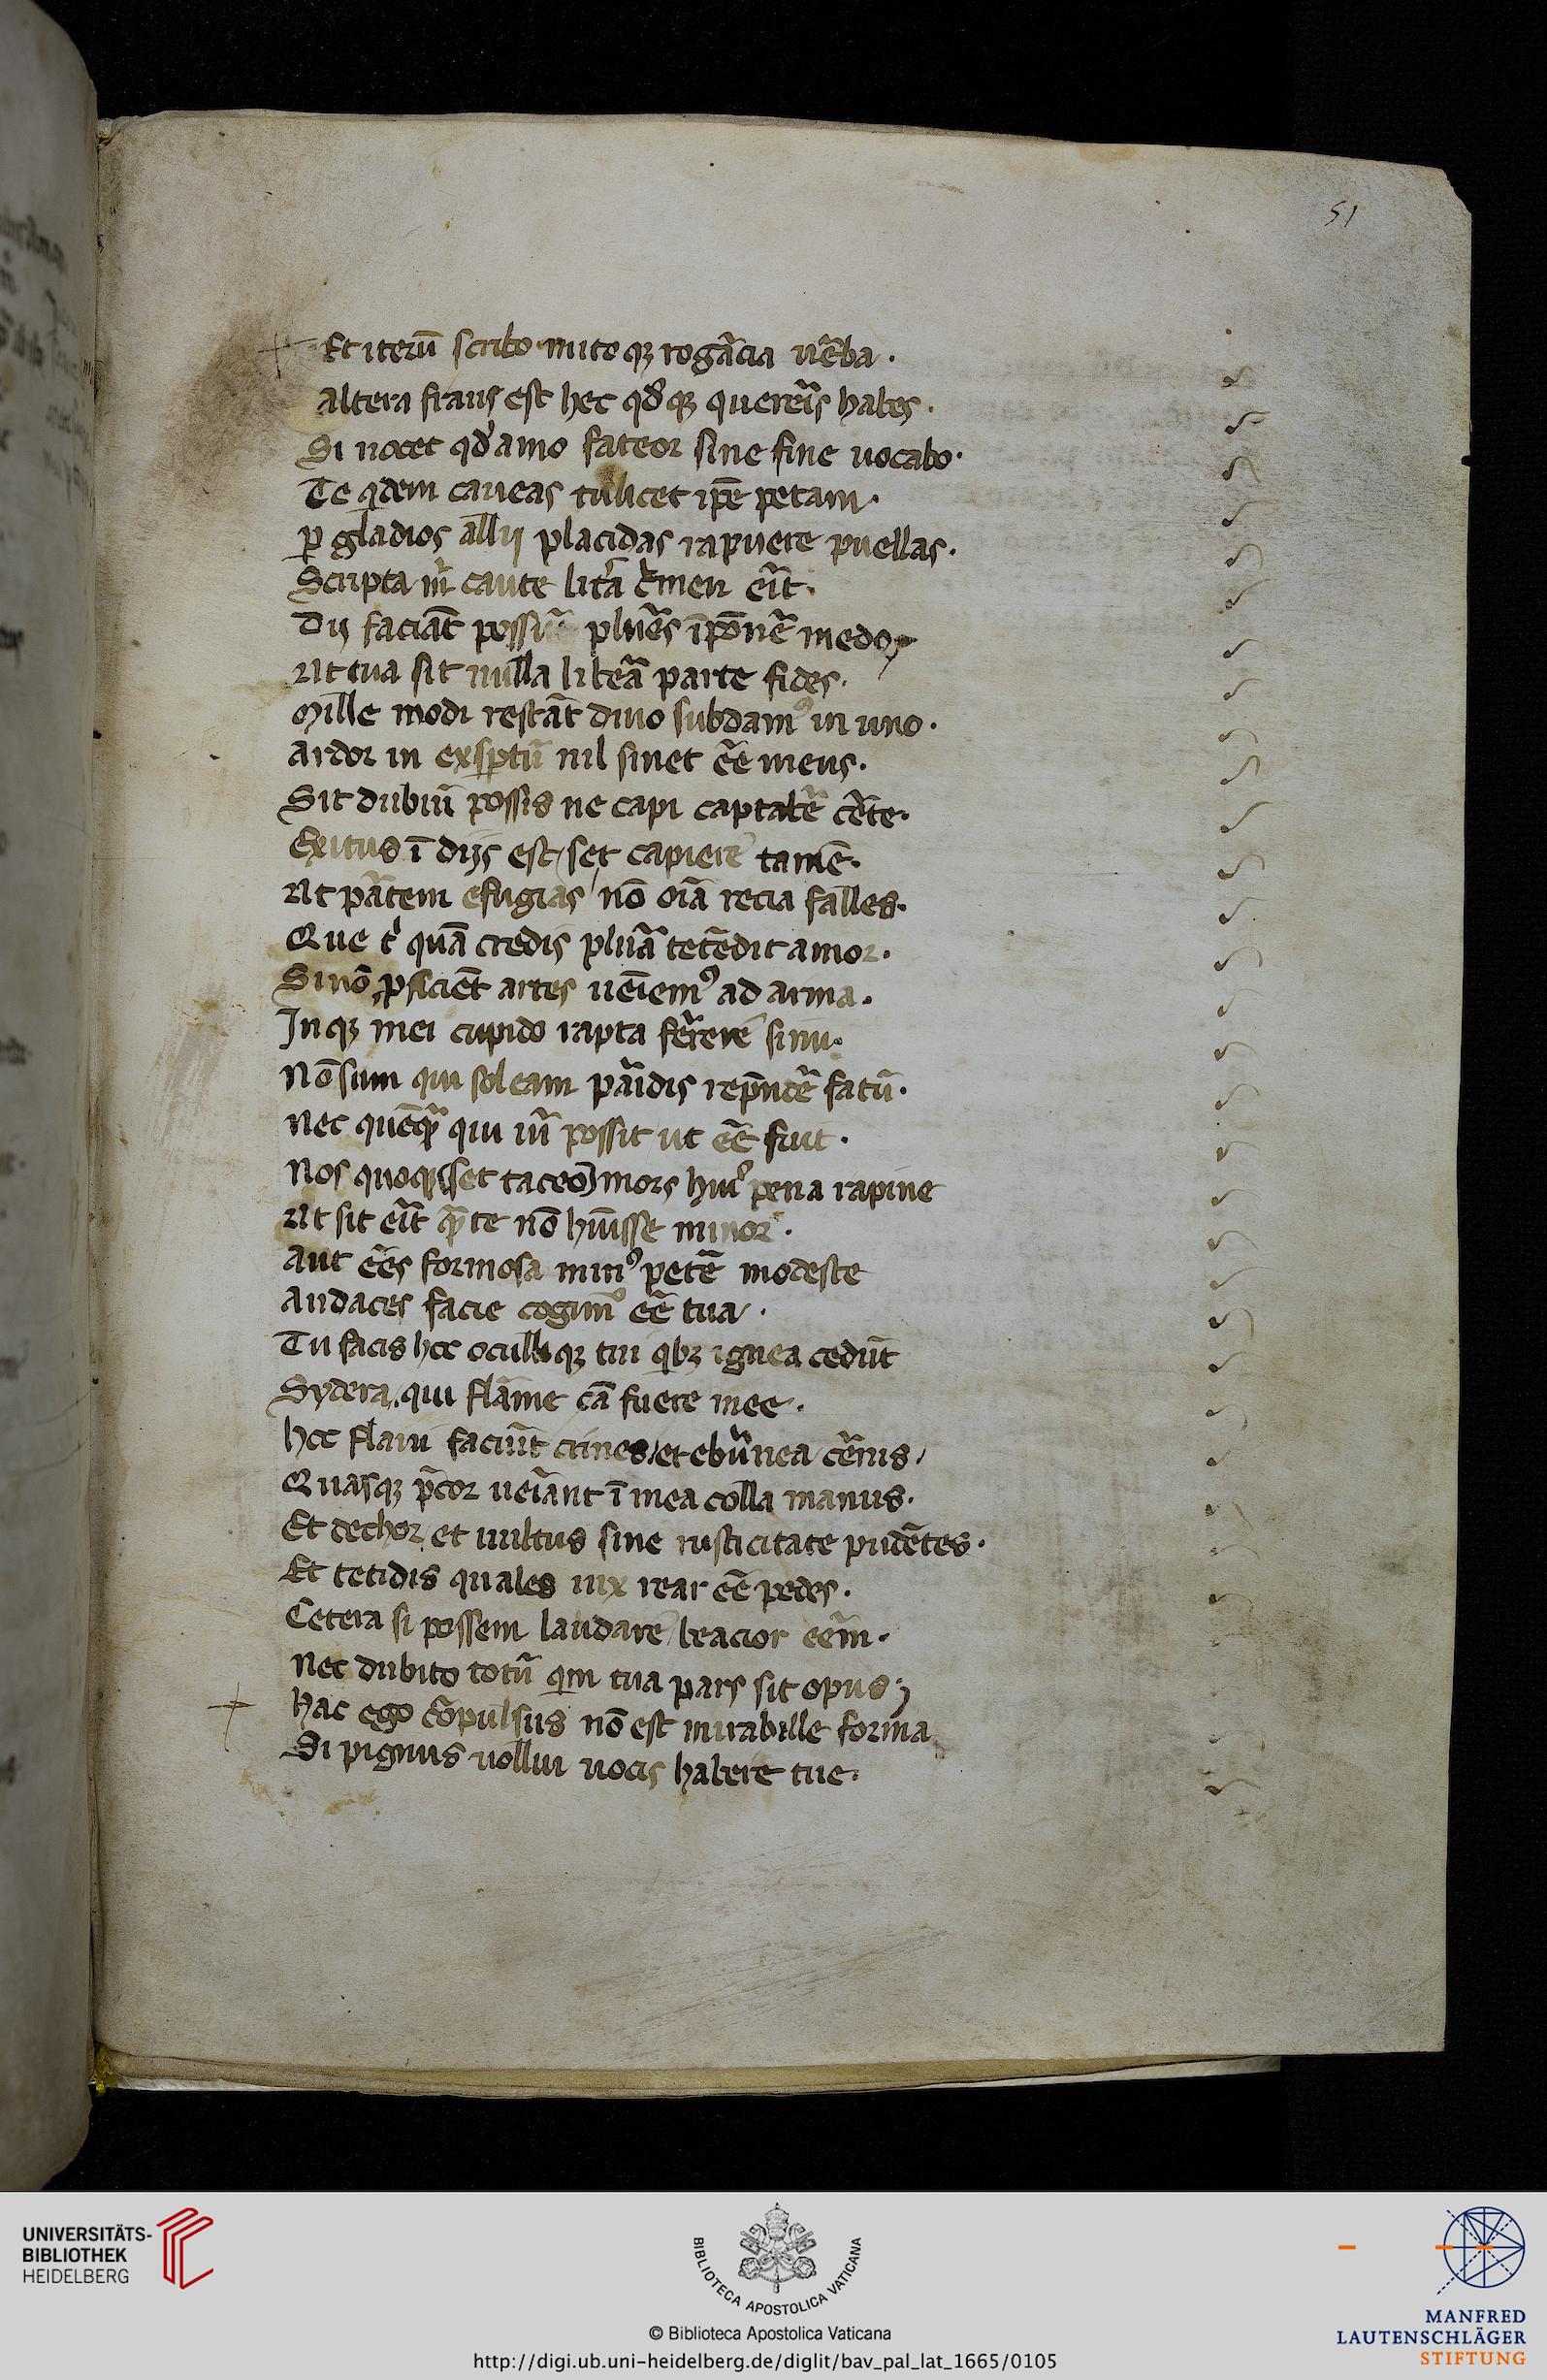 51
Et iterū scribo mitoqꝫ rogãcia uẽba .
Altera fraus est hec qđqꝫ querẽis habes .
Si nocet qđ amo fateor sine fine nocabo .
Te qdem caueas tu licet ip̄e petam .
ꝑ gladios allii placidas rapuere puellas .
Scripta m̄ caute lit̃a c̃men eĩt .
Dij faciãt possiꝫ plũes īpōnẽ nedoꝫ
Ut tua sit nulla libeã parte fides .
Mille modi restãt cliuo subdamꝰ in uno .
Ardor in exꝑtū nil sinet eẽ meus .
Sit dubiū possis ne capi captabẽ cẽte .
Exitus ī dijs est / set capiere tamē .
Ut pãtem efugias / nō oīa recia falles .
Que t' quã credis plũa tetẽdit amor .
Si nō ꝓficiẽt artes ueĩemꝰ ad arma .
Inqꝫ mei cupido rapta fẽrere sinu .
Non sum qui soleam pãidis rep̄ndẽ fatū .
Nec quẽqꝫ qui uĩ possit ut eẽ fuit .
Nos quoqꝫ (set taceo) mors huiꝰ pena rapine
Ut sit eĩt q̃ te nō huĩsse minor .
Aut eẽs formosa minꝰ petẽ modeste
Audaces facie cogimꝰ eẽ tua .
Tu facis hoc oculliqꝫ tui qbꝫ ignea cedūt
Sydera . qui flãme cã fuere mee .
Hoc flaui faciūt crines / et ebũnea cẽuis /
Quasqꝫ p̃cor ueĩant ī mea colla manus .
Et dechor et uultus sine rusticitate pudẽtes .
Et tetidis quales uix rear eẽ pedes .
Cetera si possem laudare / beacior eẽm .
Nec dubito totū qin tua pars sit opus ;
Hac ego cōpulsus nō est mirabille forma
Si pignus uollui uocis habere tue .
UNIVERSITÄTS-
BIBLIOTHEK
HEIDELBERG
BIBLIOTECA APOSTOLICA VATICANA
© Biblioteca Apostolica Vaticana
http://digi.ub.uni-heidelberg.de/diglit/bav_pal_lat_1665/0105
MANFRED
LAUTENSCHLÄGER
STIFTUNG